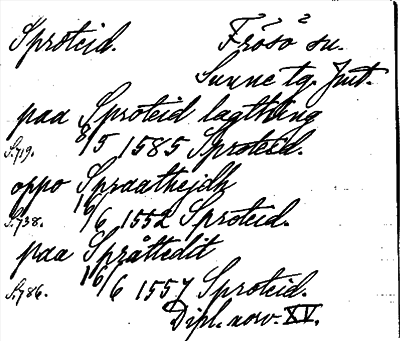 Sproteid. Frösö sn.
Sunne tg. Jmt.
paa Sproteid lagthing
S. 719. 8/5 1585 Sproteid.
oppo Spraathejdh
S. 738. 19/6 1552 Sproteid.
paa Språttedit
S. 786. 16/6 1557 Sproteid.
Dipl. norv. XV.